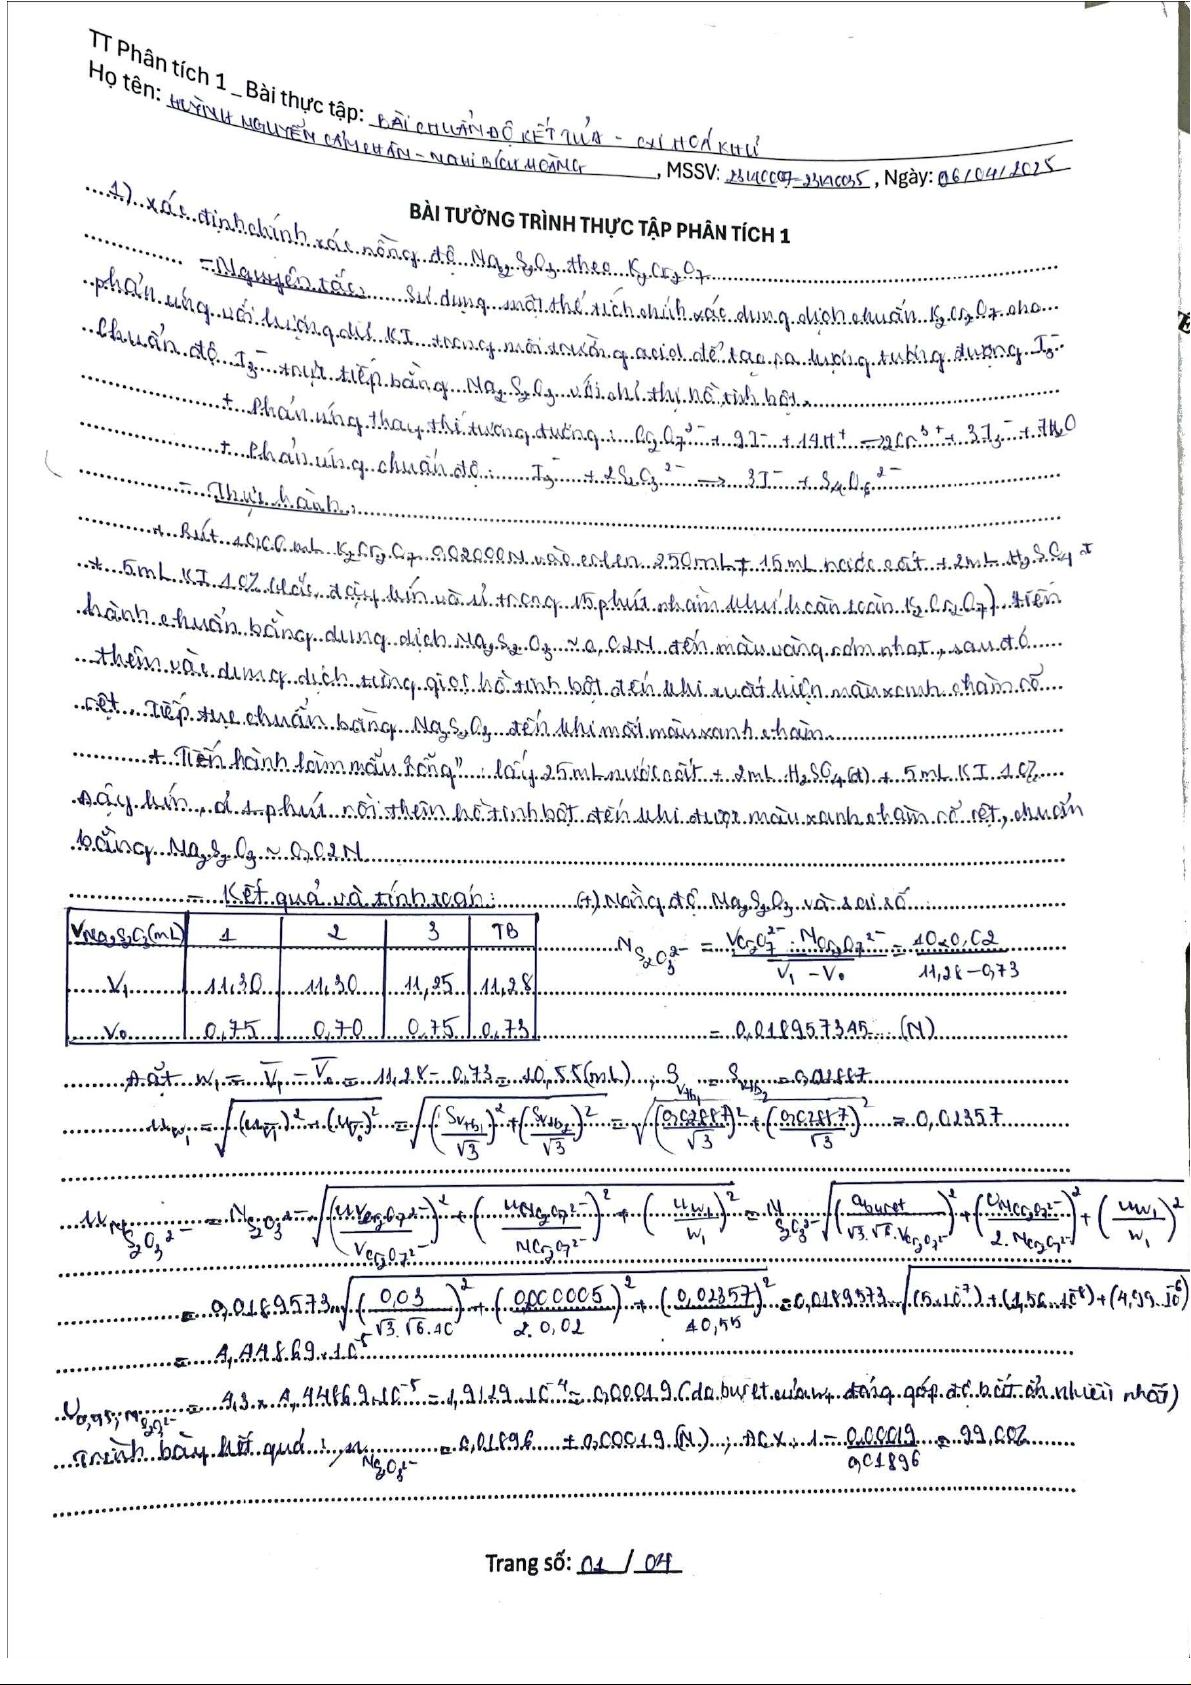 TT Phân tích 1 _ Bài thực tập: BÀI CHUẨN ĐỘ KẾT TỦA - OXI HOÁ KHỬ
Họ tên: HUỲNH NGUYỄN CẨM CHÂN - NGHI BÍCH HOÀNG, MSSV: , Ngày: 06/04/2025
BÀI TƯỜNG TRÌNH THỰC TẬP PHÂN TÍCH 1
1) xác định chính xác nồng độ Na₂S₂O₃ theo K₂Cr₂O₇
- Nguyên tắc: Sử dụng một thể tích chính xác dung dịch chuẩn K₂Cr₂O₇ cho
phản ứng với lượng dư KI trong môi trường acid để tạo ra lượng tương đương I₃⁻.
Chuẩn độ I₃⁻ trực tiếp bằng Na₂S₂O₃ với chỉ thị hồ tinh bột.
+ Phản ứng thay thế tương đương: Cr₂O₇²⁻ + 9I⁻ + 14H⁺ → 2Cr³⁺ + 3I₃⁻ + 7H₂O
+ Phản ứng chuẩn độ: I₃⁻ + 2S₂O₃²⁻ → 3I⁻ + S₄O₆²⁻
- Thực hành:
+ Hút 10,00 mL K₂Cr₂O₇ 0,02000N vào erlen 250mL + 15mL nước cất + 2mL H₂SO₄ +
+ 5mL KI 10% (lắc, đậy kín và ủ trong 15 phút nhằm khử hoàn toàn K₂Cr₂O₇) tiến
hành chuẩn bằng dung dịch Na₂S₂O₃ ~ 0,02N đến màu vàng rơm nhạt, sau đó
thêm vào dung dịch từng giọt hồ tinh bột đến khi xuất hiện màu xanh chàm rõ
rệt. Tiếp tục chuẩn bằng Na₂S₂O₃ đến khi mất màu xanh chàm.
+ Tiến hành làm mẫu "rỗng": lấy 25mL nước cất + 2mL H₂SO₄(đ) + 5mL KI 10%
Đậy kín, ủ 1 phút rồi thêm hồ tinh bột đến khi được màu xanh chàm rõ rệt, chuẩn
bằng Na₂S₂O₃ ~ 0,02N
- Kết quả và tính toán: (+) Nồng độ Na₂S₂O₃ và sai số:
V Na₂S₂O₃ (mL) 1 2 3 TB
V₁ 11,30 11,30 11,25 11,28
V₀ 0,75 0,70 0,75 0,73
N S₂O₃²⁻ = (V Cr₂O₇²⁻ . N Cr₂O₇²⁻)/(V₁ - V₀) = (10x0,02)/(11,28-0,73)
= 0,018957345 (N)
Đặt w₁ = V̄₁ - V̄₀ = 11,28 - 0,73 = 10,55 (mL); S Vtb₁ = S Vtb₂ = 0,02887
u w₁ = √((u V̄₁)² + (u V̄₀)²) = √((S Vtb₁/√3)² + (S Vtb₂/√3)²) = √((0,02887/√3)² + (0,02887/√3)²) = 0,02357
u N S₂O₃²⁻ = N S₂O₃²⁻ √((u V Cr₂O₇²⁻/V Cr₂O₇²⁻)² + (u N Cr₂O₇²⁻/N Cr₂O₇²⁻)² + (u w₁/w₁)²) = N S₂O₃²⁻ √((a buret/(√3.√6.V Cr₂O₇²⁻))² + (U N Cr₂O₇²⁻/(2.N Cr₂O₇²⁻))² + (u w₁/w₁)²)
= 0,0189573 √((0,03/(√3.√6.10))² + (0,000005/(2.0,02))² + (0,02357/10,55)²) = 0,0189573 √((5.10⁻⁷) + (1,56.10⁻⁸) + (4,99.10⁻⁶))
= 4,44869.10⁻⁵
U 0,95; N S₂O₃²⁻ = 4,3 x 4,44869.10⁻⁵ = 1,9129.10⁻⁴ = 0,00019 (do buret của w₁ đóng góp độ bất ổn nhiều nhất)
Trình bày kết quả: μ N S₂O₃²⁻ = 0,01896 ± 0,00019 (N); ĐCX: 1 - 0,00019/0,01896 = 99,00%
Trang số: 01 / 04